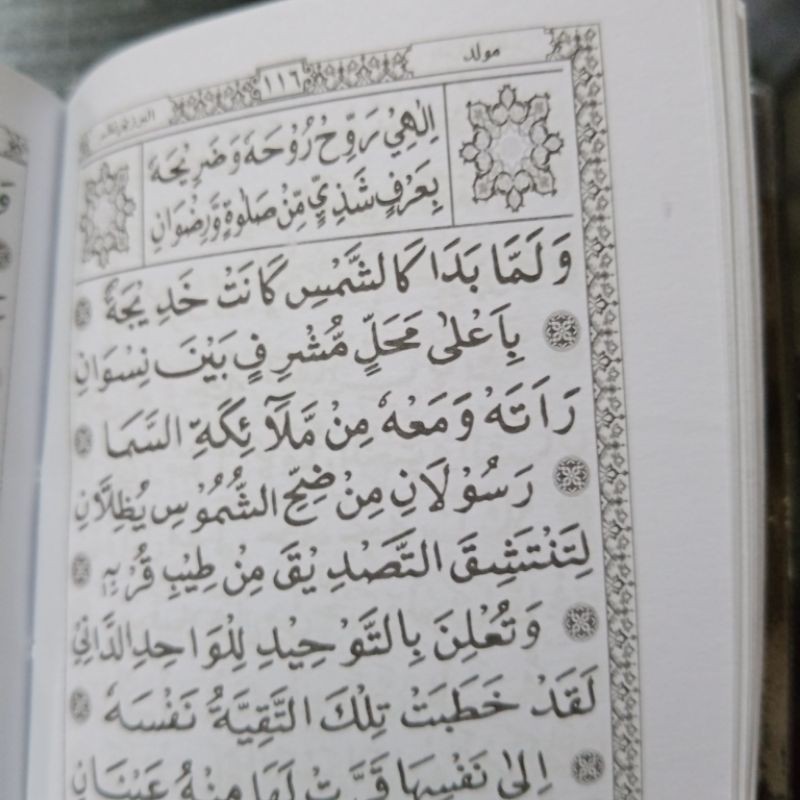 مولد
١١٦
اِلٰهِيْ رَوِّحْ رُوْحَهٗ وَضَرِيْحَهٗ
بِعَرْفٍ شَذِيٍّ مِّنْ صَلٰوةٍ وَّرِضْوَانِ
وَلَمَّا بَدَا كَالشَّمْسِ كَانَتْ خَدِيْجَةٌ
بِاَعْلٰى مَحَلٍّ مُّشْرِفٍ بَيْنَ نِسْوَانِ
رَاَتَهْ وَمَعْهٗ مِنْ مَّلَآئِكَةِ السَّمَا
رَسُوْلَانِ مِنْ ضِحِّ الشُّمُوْسِ يُظِلَّانِ
لِتَنْتَشِقَ التَّصْدِيْقَ مِنْ طِيْبِ قُرْبِهٖ
وَتُعْلِنَ بِالتَّوْحِيْدِ لِلْوَاحِدِ الدَّانِيْ
لَقَدْ خَطَبَتْ تِلْكَ التَّقِيَّةُ نَفْسَهٗ
اِلٰى نَفْسِهَا قَرَّتْ لَهَا مِنْهُ عَيْنَانِ